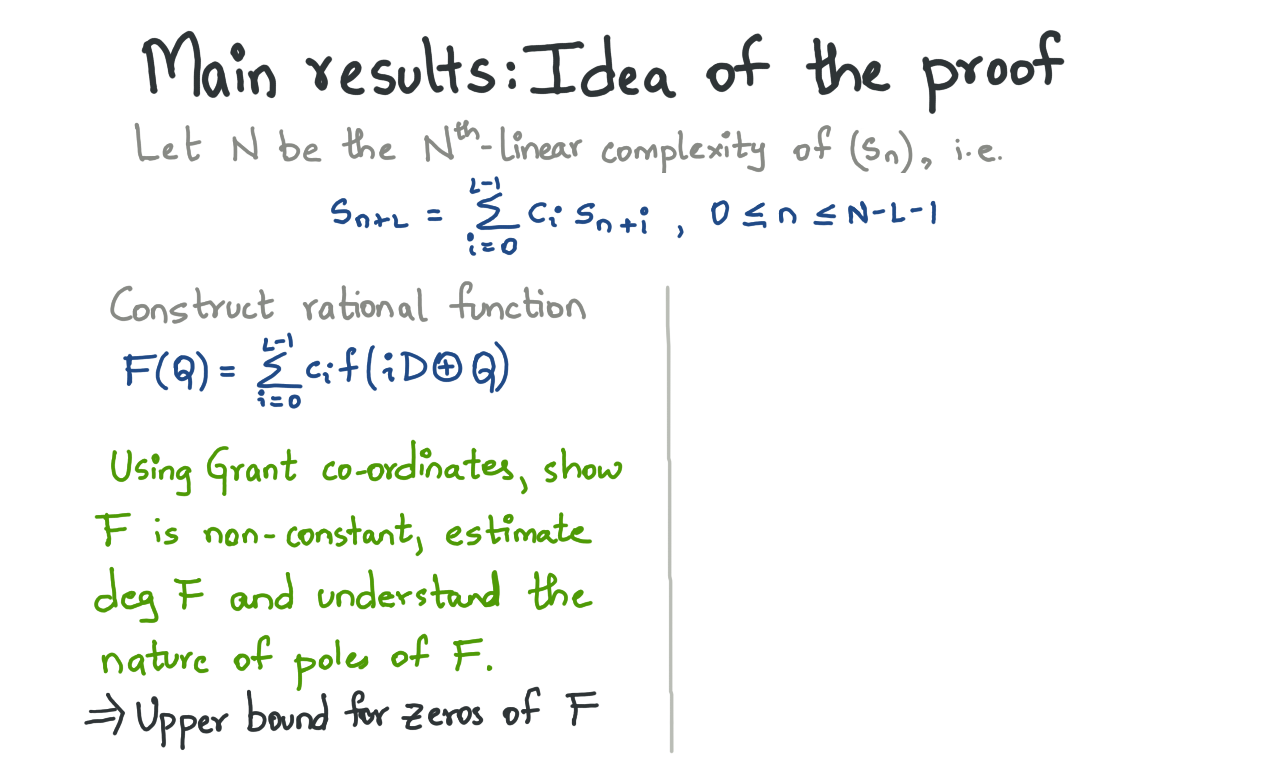 Main results: Idea of the proof
Let N be the Nth-linear complexity of (sn), i.e.
s_{n+L} = \sum_{i=0}^{L-1} c_i s_{n+i} , 0 ≤ n ≤ N-L-1
Construct rational function
F(Q) = \sum_{i=0}^{L-1} c_i f(iD⊕Q)
Using Grant co-ordinates, show
F is non-constant, estimate
deg F and understand the
nature of poles of F.
⇒ Upper bound for zeros of F